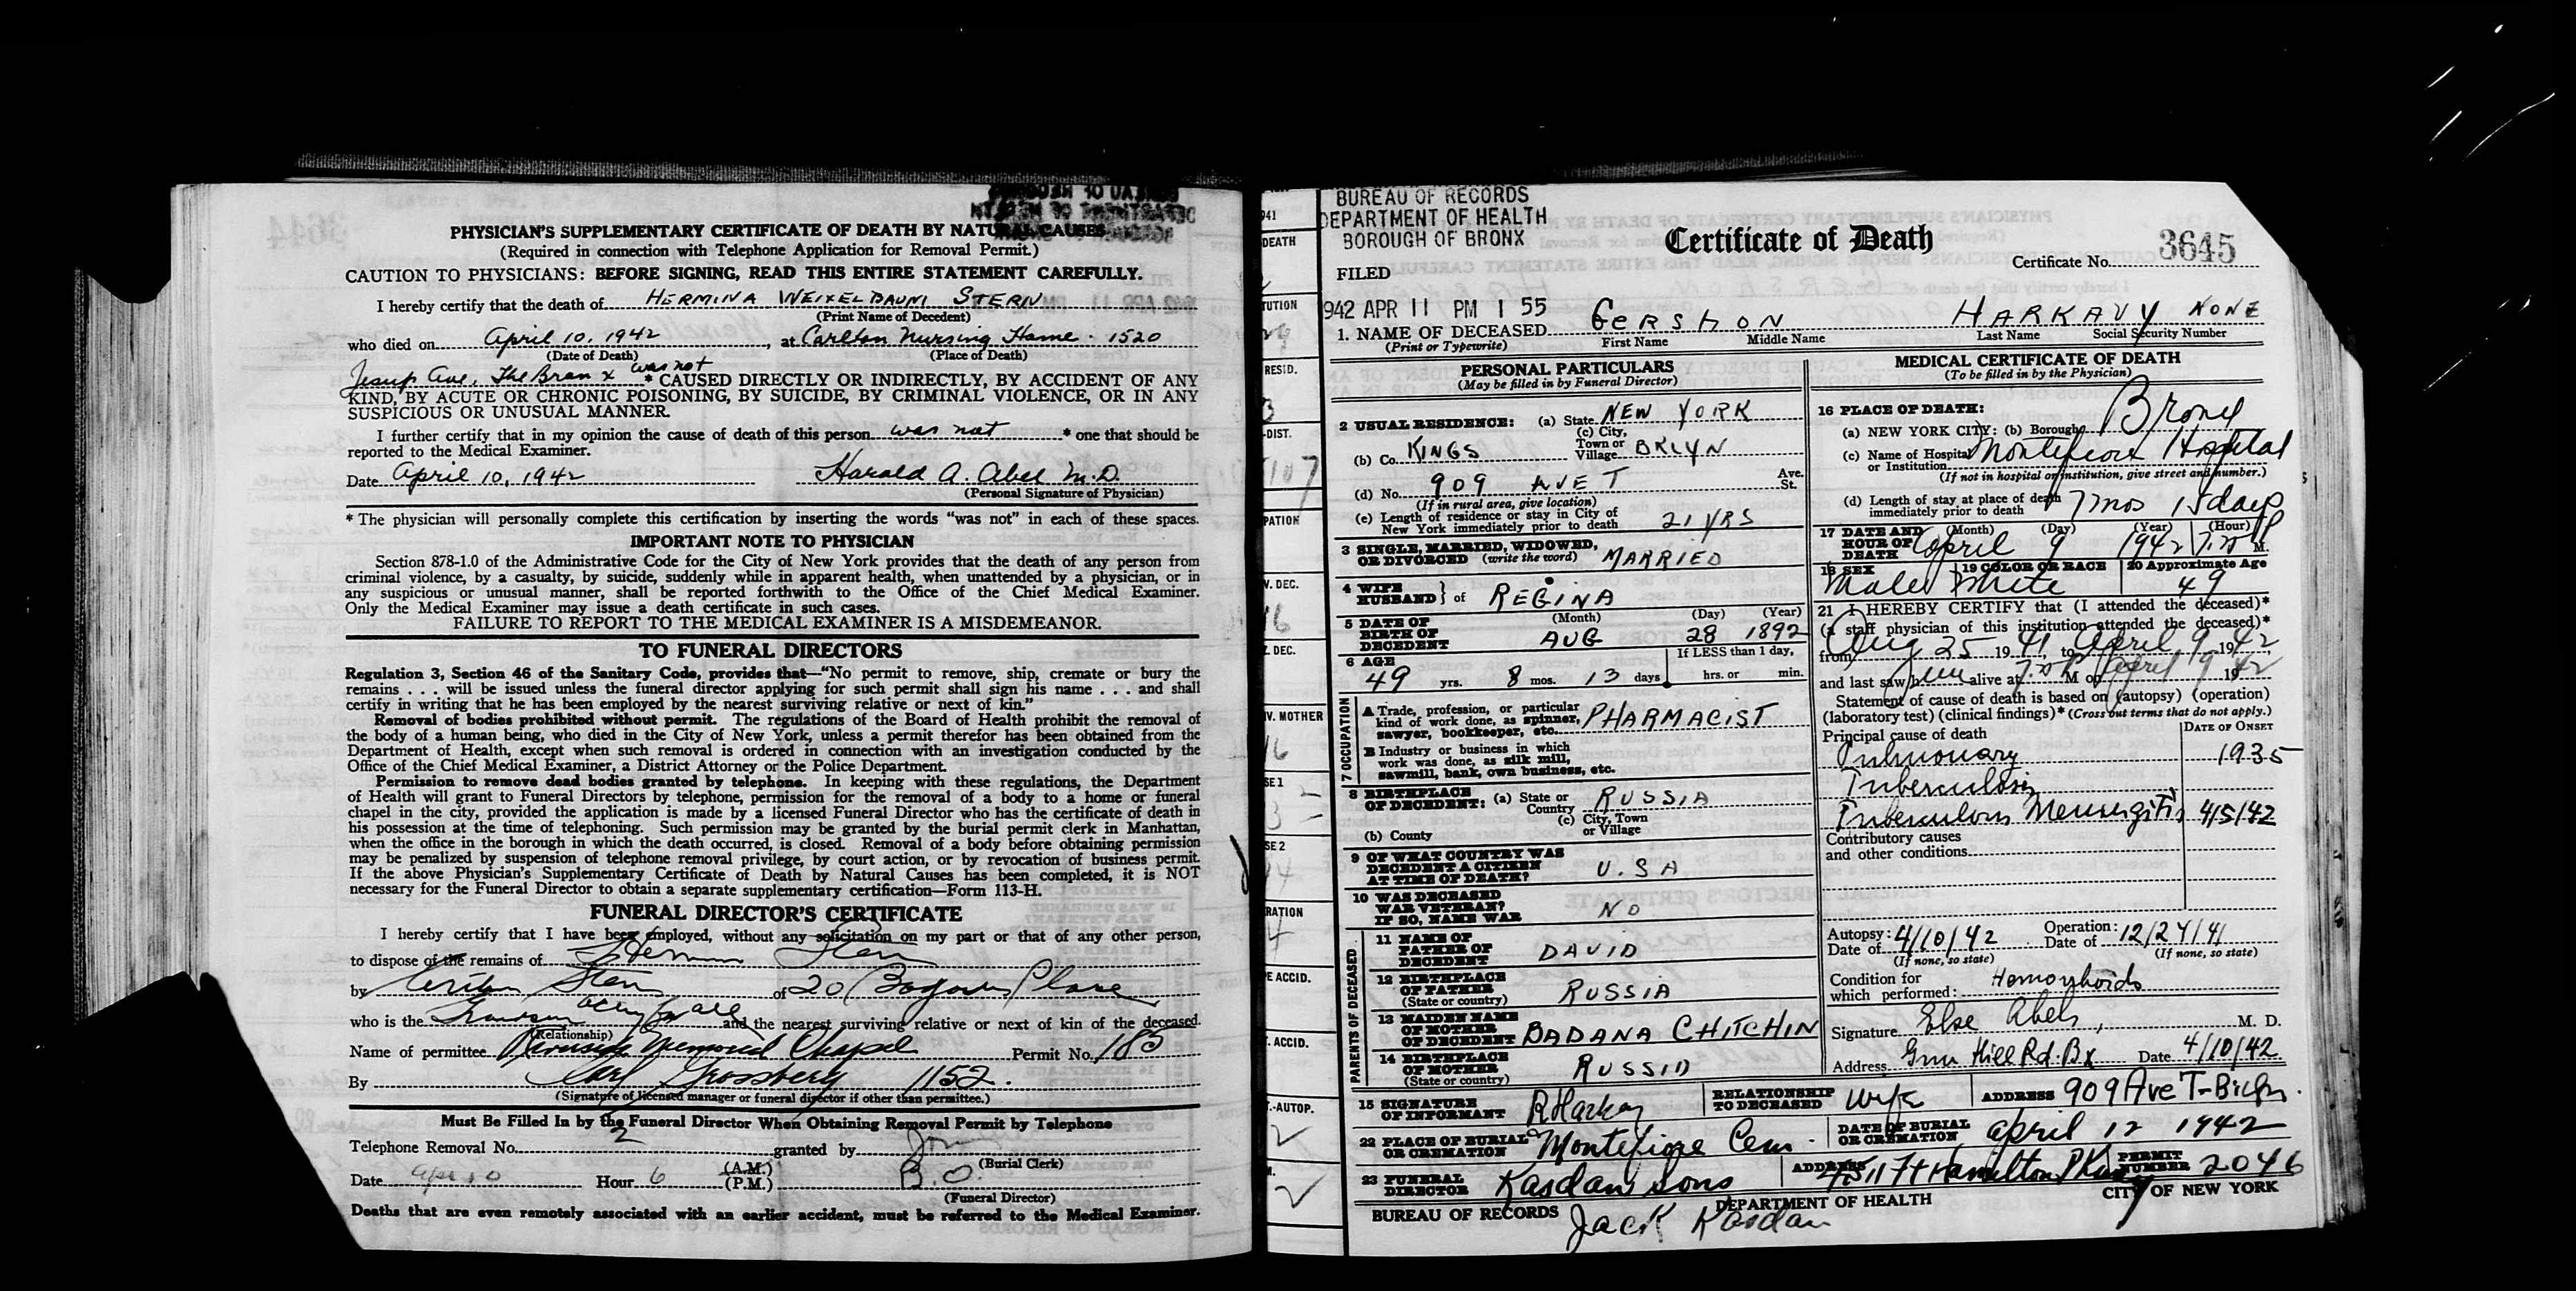 PHYSICIAN'S SUPPLEMENTARY CERTIFICATE OF DEATH BY NATURAL CAUSES
(Required in connection with Telephone Application for Removal Permit.)
CAUTION TO PHYSICIANS: BEFORE SIGNING, READ THIS ENTIRE STATEMENT CAREFULLY.
I hereby certify that the death of HERMINA WEIXELBAUM STERN
(Print Name of Decedent)
who died on April 10, 1942, at Carlton Nursing Home - 1520
(Date of Death) (Place of Death)
Jesup Ave, The Bronx was not * CAUSED DIRECTLY OR INDIRECTLY, BY ACCIDENT OF ANY
KIND, BY ACUTE OR CHRONIC POISONING, BY SUICIDE, BY CRIMINAL VIOLENCE, OR IN ANY
SUSPICIOUS OR UNUSUAL MANNER.
I further certify that in my opinion the cause of death of this person was not * one that should be
reported to the Medical Examiner.
Date April 10, 1942 Harald A. Abel M.D.
(Personal Signature of Physician)
* The physician will personally complete this certification by inserting the words "was not" in each of these spaces.
IMPORTANT NOTE TO PHYSICIAN
Section 878-1.0 of the Administrative Code for the City of New York provides that the death of any person from
criminal violence, by a casualty, by suicide, suddenly while in apparent health, when unattended by a physician, or in
any suspicious or unusual manner, shall be reported forthwith to the Office of the Chief Medical Examiner.
Only the Medical Examiner may issue a death certificate in such cases.
FAILURE TO REPORT TO THE MEDICAL EXAMINER IS A MISDEMEANOR.
TO FUNERAL DIRECTORS
Regulation 3, Section 46 of the Sanitary Code, provides that—"No permit to remove, ship, cremate or bury the
remains . . . will be issued unless the funeral director applying for such permit shall sign his name . . . and shall
certify in writing that he has been employed by the nearest surviving relative or next of kin."
Removal of bodies prohibited without permit. The regulations of the Board of Health prohibit the removal of
the body of a human being, who died in the City of New York, unless a permit therefor has been obtained from the
Department of Health, except when such removal is ordered in connection with an investigation conducted by the
Office of the Chief Medical Examiner, a District Attorney or the Police Department.
Permission to remove dead bodies granted by telephone. In keeping with these regulations, the Department
of Health will grant to Funeral Directors by telephone, permission for the removal of a body to a home or funeral
chapel in the city, provided the application is made by a licensed Funeral Director who has the certificate of death in
his possession at the time of telephoning. Such permission may be granted by the burial permit clerk in Manhattan,
when the office in the borough in which the death occurred, is closed. Removal of a body before obtaining permission
may be penalized by suspension of telephone removal privilege, by court action, or by revocation of business permit.
If the above Physician's Supplementary Certificate of Death by Natural Causes has been completed, it is NOT
necessary for the Funeral Director to obtain a separate supplementary certification—Form 113-H.
FUNERAL DIRECTOR'S CERTIFICATE
I hereby certify that I have been employed, without any solicitation on my part or that of any other person,
to dispose of the remains of Stern
by Stern of 20 Place
who is the Grandson and the nearest surviving relative or next of kin of the deceased.
(Relationship)
Name of permittee Riverside Memorial Chapel Permit No. 185
By Carl Grossberg 1152.
(Signature of licensed manager or funeral director if other than permittee.)
Must Be Filled In by the Funeral Director When Obtaining Removal Permit by Telephone
Telephone Removal No. 2 granted by
(Burial Clerk)
Date Apr 10 Hour 6 (A.M.) (P.M.) B.O.
(Funeral Director)
Deaths that are even remotely associated with an earlier accident, must be referred to the Medical Examiner.
BUREAU OF RECORDS
DEPARTMENT OF HEALTH
BOROUGH OF BRONX
FILED
942 APR 11 PM 1 55
Certificate of Death
Certificate No. 3645
1. NAME OF DECEASED GERSHON HARKAVY NONE
(Print or Typewrite) First Name Middle Name Last Name Social Security Number
PERSONAL PARTICULARS
(May be filled in by Funeral Director)
2 USUAL RESIDENCE: (a) State NEW YORK
(b) Co. KINGS (c) City, Town or Village BKLYN
(d) No. 909 AVE T Ave. St.
(If in rural area, give location)
(e) Length of residence or stay in City of New York immediately prior to death 21 YRS
3 SINGLE, MARRIED, WIDOWED, OR DIVORCED (write the word) MARRIED
4 WIFE HUSBAND } of REGINA
5 DATE OF BIRTH OF DECEDENT (Month) (Day) (Year) AUG 28 1892
6 AGE 49 yrs. 8 mos. 13 days If LESS than 1 day, hrs. or min.
7 OCCUPATION
A Trade, profession, or particular kind of work done, as spinner, sawyer, bookkeeper, etc. PHARMACIST
B Industry or business in which work was done, as silk mill, sawmill, bank, own business, etc.
8 BIRTHPLACE OF DECEDENT: (a) State or Country RUSSIA
(b) County (c) City, Town or Village
9 OF WHAT COUNTRY WAS DECEDENT A CITIZEN AT TIME OF DEATH? U.S A
10 WAS DECEASED WAR VETERAN? IF SO, NAME WAR NO
PARENTS OF DECEASED
11 NAME OF FATHER OF DECEDENT DAVID
12 BIRTHPLACE OF FATHER (State or country) RUSSIA
13 MAIDEN NAME OF MOTHER OF DECEDENT BADANA CHITCHIN
14 BIRTHPLACE OF MOTHER (State or country) RUSSIA
MEDICAL CERTIFICATE OF DEATH
(To be filled in by the Physician)
16 PLACE OF DEATH:
(a) NEW YORK CITY: (b) Borough Bronx
(c) Name of Hospital or Institution Montefiore Hospital
(If not in hospital or institution, give street and number.)
(d) Length of stay at place of death immediately prior to death 7 mos 15 days
17 DATE AND HOUR OF DEATH (Month) (Day) (Year) (Hour) April 9 1942 7:20 P M.
18 SEX Male 19 COLOR OR RACE White 20 Approximate Age 49
21 I HEREBY CERTIFY that (I attended the deceased)*
(a staff physician of this institution attended the deceased)*
from Aug 25 1941, to April 9 1942,
and last saw him alive at 7:20 P M on April 9 1942
Statement of cause of death is based on (autopsy) (operation)
(laboratory test) (clinical findings)* (Cross out terms that do not apply.)
Principal cause of death DATE OF ONSET
Pulmonary 1935
Tuberculosis
Tuberculous Meningitis 4/5/42
Contributory causes
and other conditions
Autopsy: Date of 4/10/42 Operation: Date of 12/24/41
(If none, so state) (If none, so state)
Condition for which performed: Hemorrhoids
Signature Else Abels, M. D.
Address Gun Hill Rd. Bx Date 4/10/42
15 SIGNATURE OF INFORMANT R Harkavy RELATIONSHIP TO DECEASED Wife ADDRESS 909 Ave T - Bklyn.
22 PLACE OF BURIAL OR CREMATION Montefiore Cem. DATE OF BURIAL OR CREMATION April 12 1942
23 FUNERAL DIRECTOR Kasdan Sons ADDRESS Hamilton Pkway PERMIT NUMBER 2046
BUREAU OF RECORDS DEPARTMENT OF HEALTH CITY OF NEW YORK
Jack Kasdan